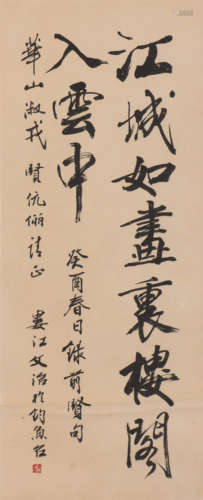 江城如畫裏樓閣
入雲中
癸酉春日錄前賢句
華山淑戎 賢伉儷請正
婁江文治於釣魚台